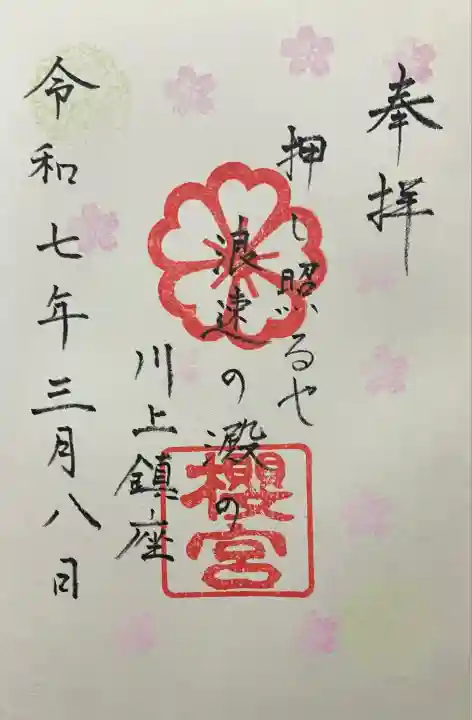 奉拝
押し照るや
浪速の澱の
川上鎮座
令和七年三月八日
櫻宮